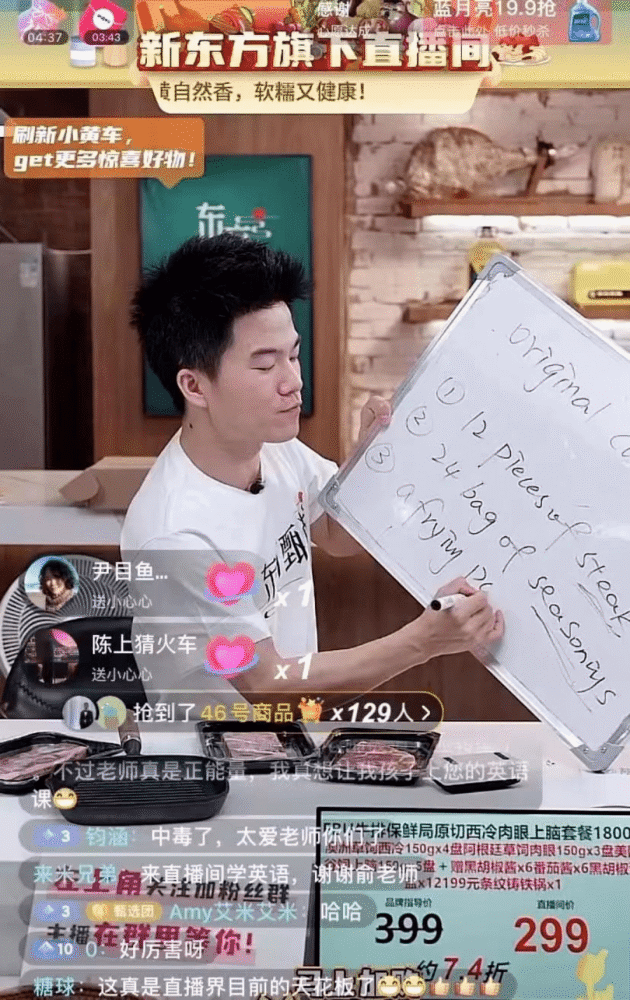 04:37
03:43
感谢
心愿达成
蓝月亮19.9抢
点击此处 低价秒杀
新东方旗下直播间
黄自然香，软糯又健康！
刷新小黄车，
get更多惊喜好物！
东
original
① 12 pieces of steak
② 24 bag of seasonings
③ a frying
甄
尹目鱼...
送小心心
x 1
陈上猜火车
送小心心
x 1
抢到了 46号商品 x129人 >
。不过老师真是正能量，我真想让我孩子上您的英语
课😁
3 钧涵：中毒了，太爱老师你们了
来米兄弟：来直播间学英语，谢谢俞老师
3 甄选团 Amy艾米艾米：哈哈
10 0：好厉害呀
糖球：这真是直播界目前的天花板了😁😁👍👍👍
左上角关注加粉丝群
主播在群里等你！
牛排保鲜局原切西冷肉眼上脑套餐1800
澳洲草饲西冷150gx4盘阿根廷草饲肉眼150gx3盘美
盘 + 赠黑胡椒酱x6番茄酱x6黑胡椒
盘x12199元条纹铸铁锅x1
品牌指导价
399
直播间价
299
约7.4折